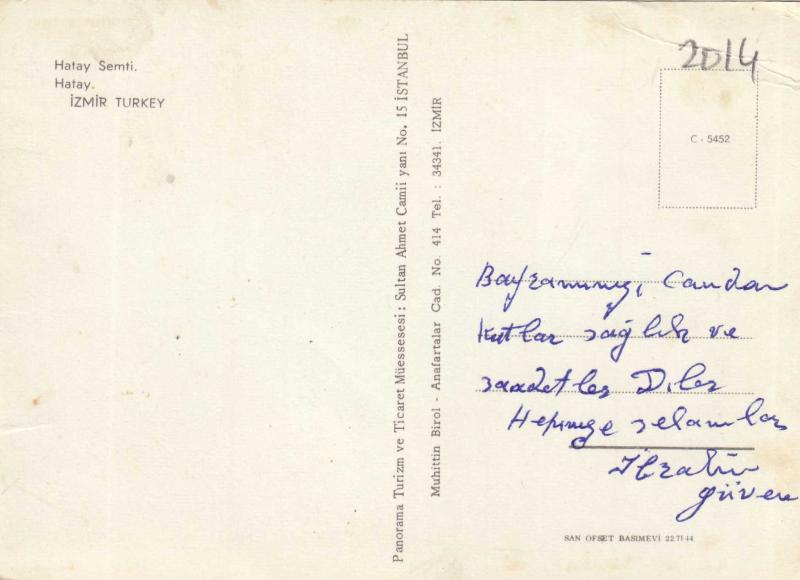 Hatay Semti.
Hatay.
İZMİR TURKEY
Panorama Turizm ve Ticaret Müessesesi : Sultan Ahmet Camii yanı No. 15 İSTANBUL
Muhittin Birol - Anafartalar Cad. No. 414 Tel. : 34341. İZMİR
2014
C - 5452
Bayramınızı Candan
kutlar sağlık ve
saadetler Diler
Hepinize selamlar
İbrahim
güven
SAN OFSET BASIMEVİ 22 71 44